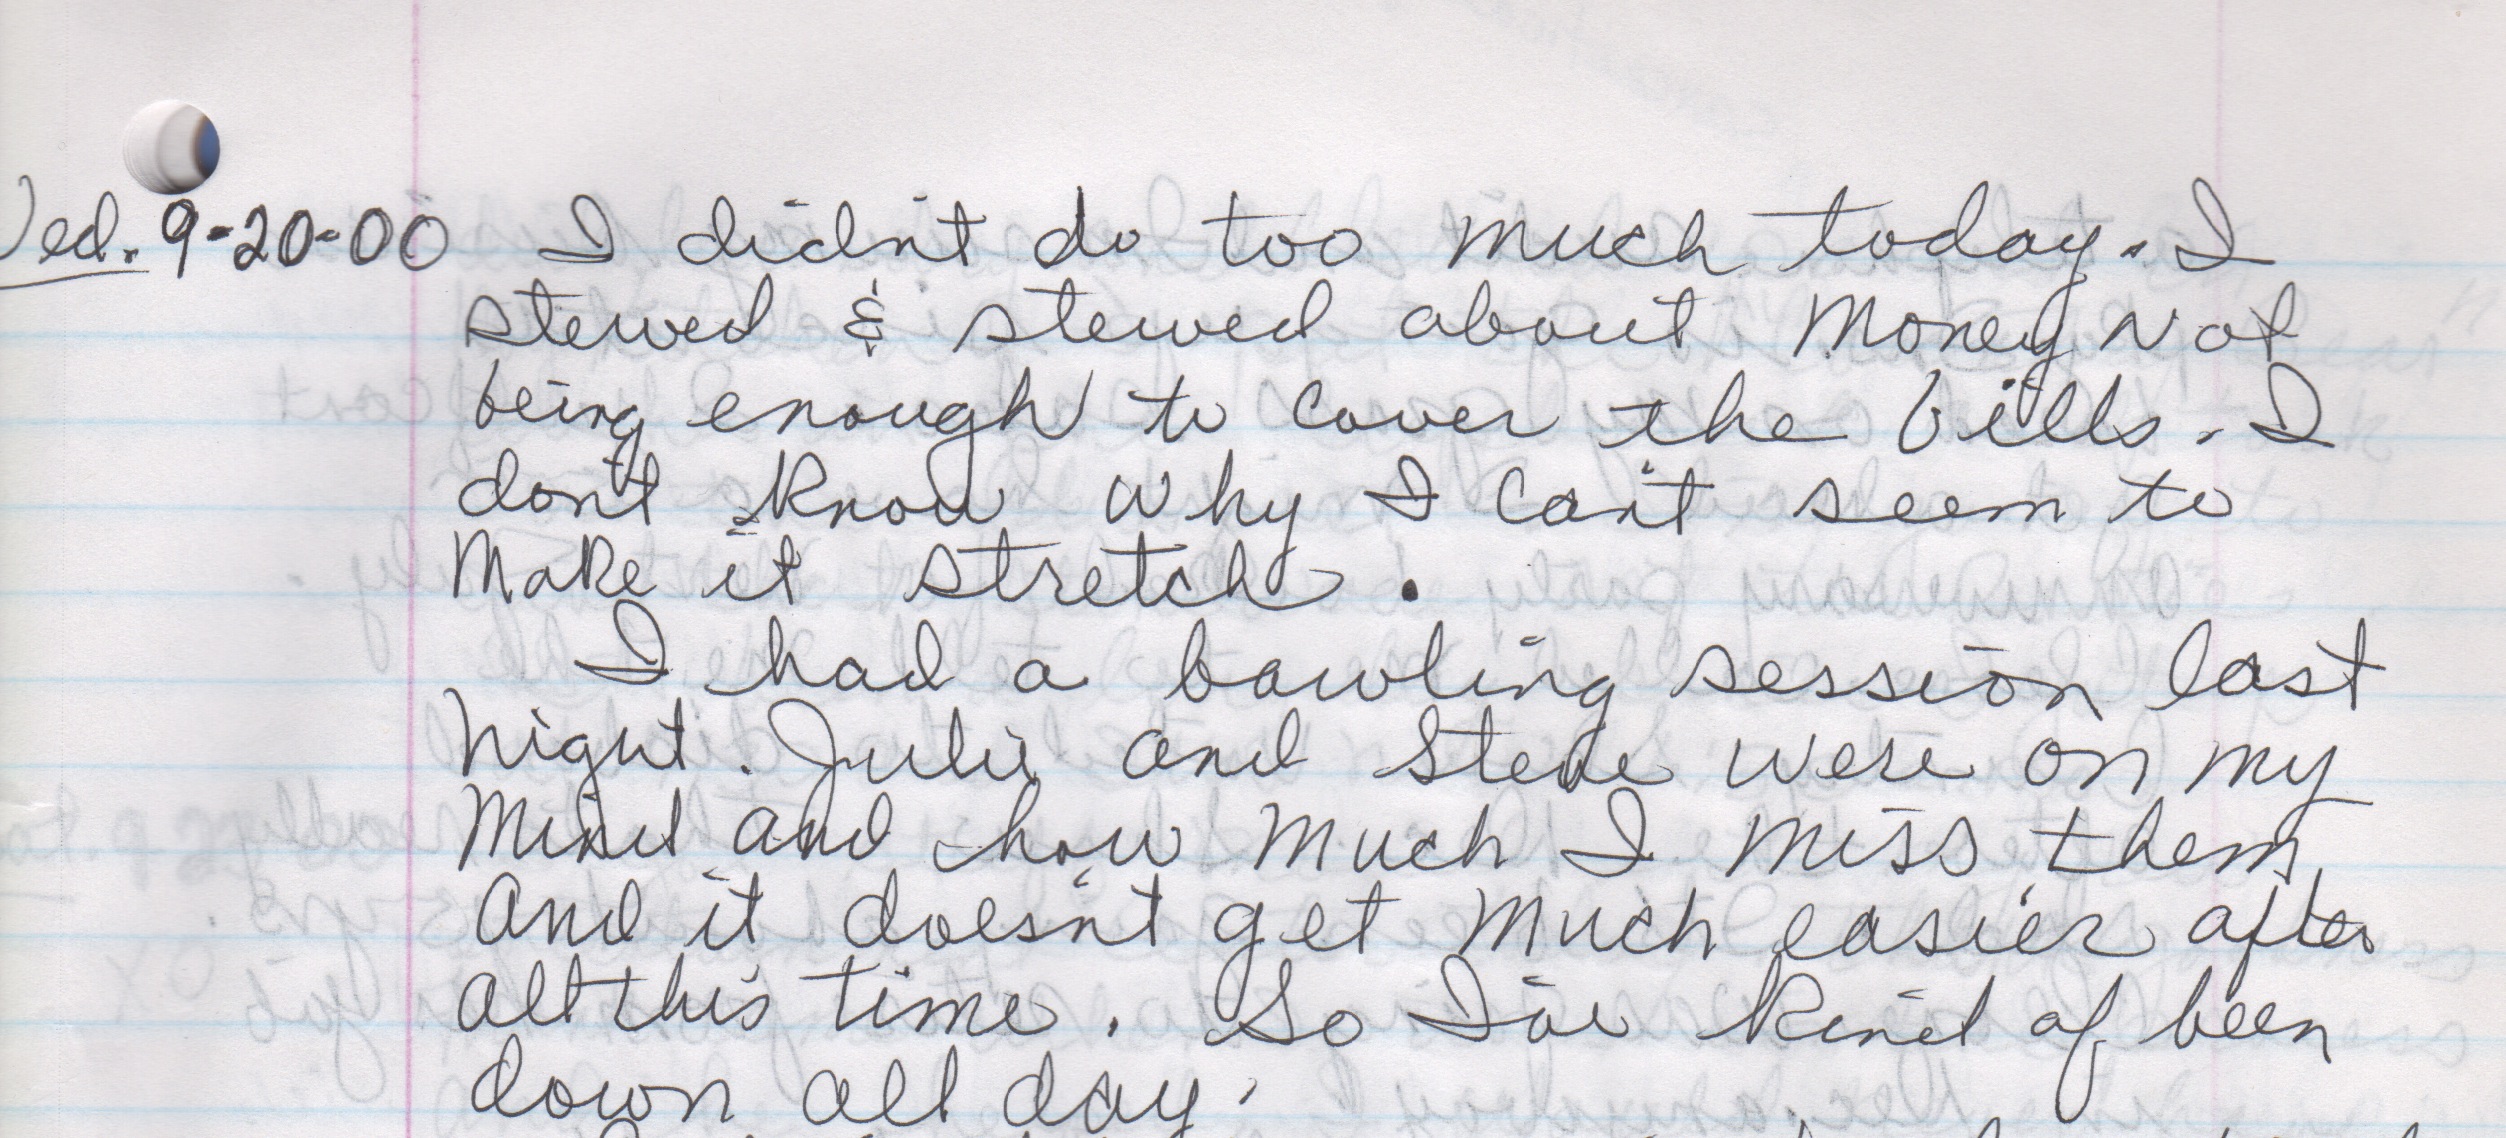 Wed. 9-20-00 I didn't do too much today. I
stewed & stewed about Money Not
being enough to cover the bills. I
don't know why I can't seem to
Make it stretch.
I had a bawling session last
night. Julie and Steve were on my
Mind and how much I miss them
And it doesn't get much easier after
all this time. So I've kind of been
down all day.